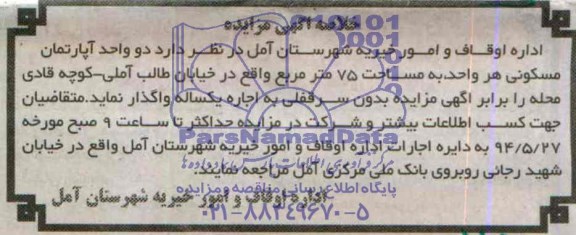 خلاصه آگهی مزایده
اداره اوقاف و امور خیریه شهرستان آمل در نظر دارد دو واحد آپارتمان
مسکونی هر واحدبه مساحت ۷۵ متر مربع واقع در خیابان طالب آملی-کوچه قادی
محله را برابر اگهی مزایده بدون سرقفلی به اجاره یکساله واگذار نماید.متقاضیان
جهت کسب اطلاعات بیشتر و شرکت در مزایده حداکثر تا ساعت ۹ صبح مورخه
۹۴/۵/۲۷ به دایره اجارات اداره اوقاف و امور خیریه شهرستان آمل واقع در خیابان
شهید رجائی روبروی بانک ملی مرکزی آمل مراجعه نمایند.
اداره اوقاف و امور خیریه شهرستان آمل
ParsNamadData
پایگاه اطلاع رسانی مناقصه و مزایده
۰۲۱-۸۸۳۴۹۶۷۰-۵